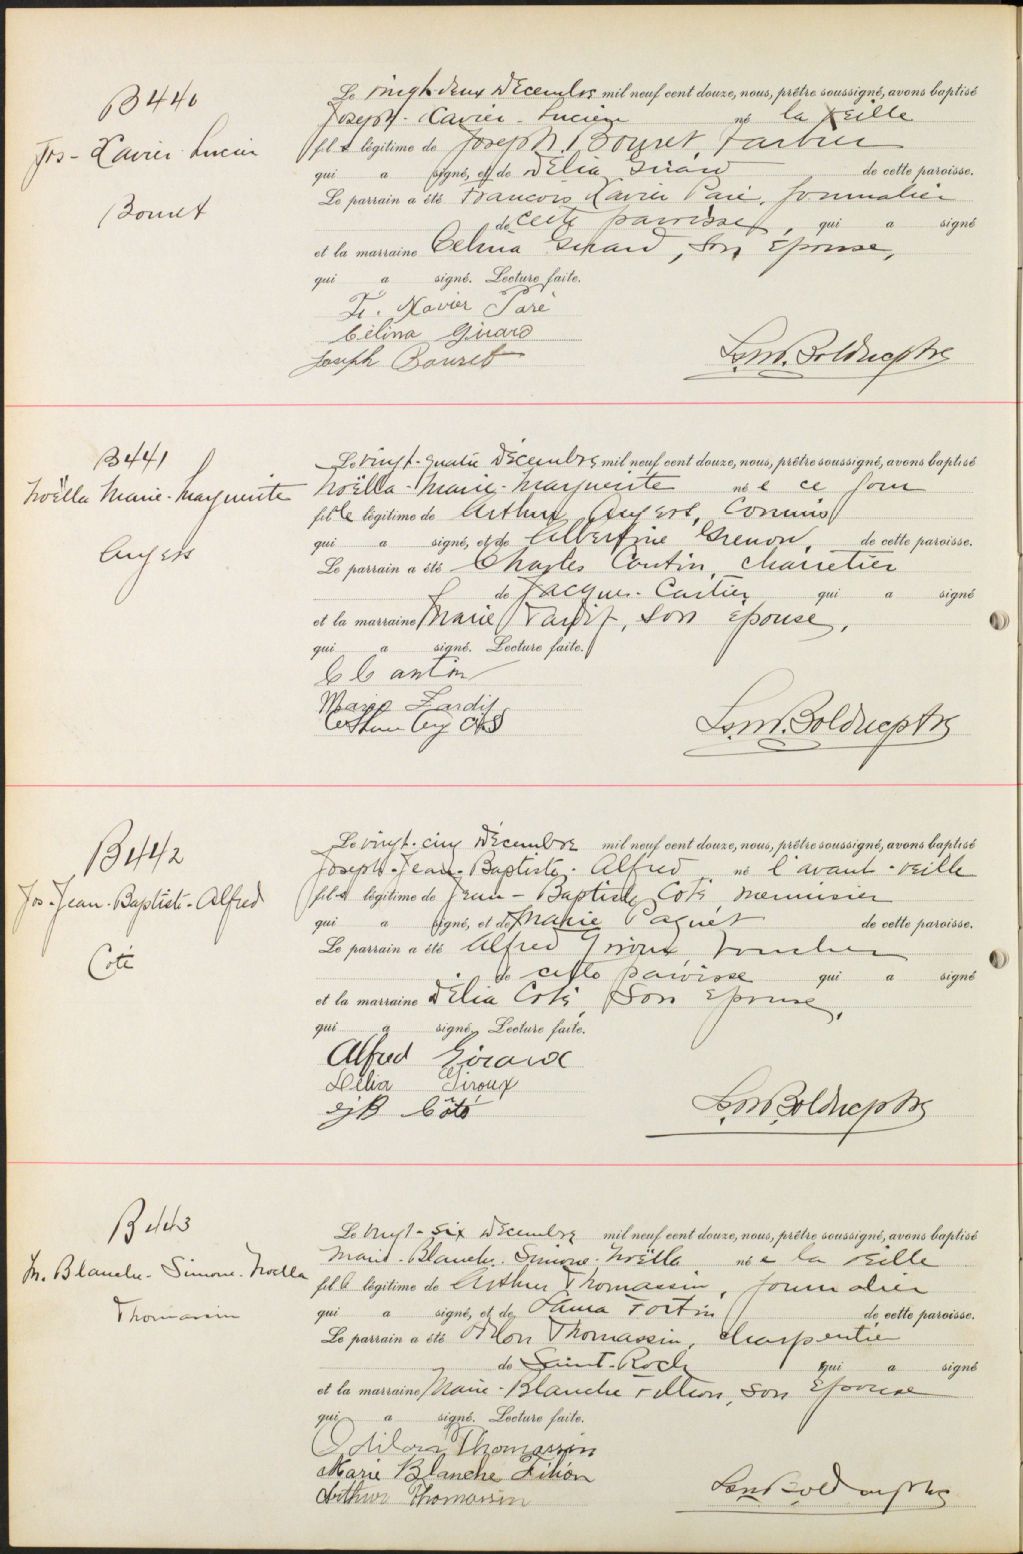 B440
Jos-Xavier Lucien
Bouret
Le vingt-deux Décembre mil neuf cent douze, nous, prêtre soussigné, avons baptisé
Joseph-Xavier-Lucien né la veille
fils légitime de Joseph Bouret,
qui a signé, et de Délia Girard de cette paroisse.
Le parrain a été François Xavier Paré, journalier
de cette paroisse, qui a signé
et la marraine Célina Girard, son épouse,
qui a signé. Lecture faite.
F. Xavier Paré
Célina Girard
Joseph Bouret
Bolduc ptre
B441
Noëlla Marie-Marguerite
Angers
Le vingt-quatre Décembre mil neuf cent douze, nous, prêtre soussigné, avons baptisé
Noëlla-Marie-Marguerite née ce jour
fille légitime de Arthur Angers, Commis
qui a signé, et de Albertine Grenon, de cette paroisse.
Le parrain a été Charles Cantin, charretier
de Jacques-Cartier qui a signé
et la marraine Marie Tardif, son épouse,
qui a signé. Lecture faite.
C C antin
Marie Tardif
Arthur Angers
Bolduc ptre
B442
Jos-Jean-Baptiste-Alfred
Coté
Le vingt-cinq Décembre mil neuf cent douze, nous, prêtre soussigné, avons baptisé
Joseph-Jean-Baptiste-Alfred né l'avant-veille
fils légitime de Jean-Baptiste Coté menuisier
qui a signé, et de Marie Paquet de cette paroisse.
Le parrain a été Alfred Giroux
de cette paroisse qui a signé
et la marraine Délia Coté, son épouse,
qui a signé. Lecture faite.
Alfred
Délia Giroux
J B Côté
Bolduc ptre
B443
M. Blanche-Simone-Noëlla
Thomassin
Le vingt-six Décembre mil neuf cent douze, nous, prêtre soussigné, avons baptisé
Marie-Blanche-Simone-Noëlla née la veille
fille légitime de Arthur Thomassin, journalier
qui a signé, et de Laura Fortin de cette paroisse.
Le parrain a été Thomassin, charpentier
de Saint-Roch qui a signé
et la marraine Marie-Blanche Fillion, son épouse
qui a signé. Lecture faite.
Odilon Thomassin
Marie Blanche Filion
Arthur Thomassin
Bolduc ptre